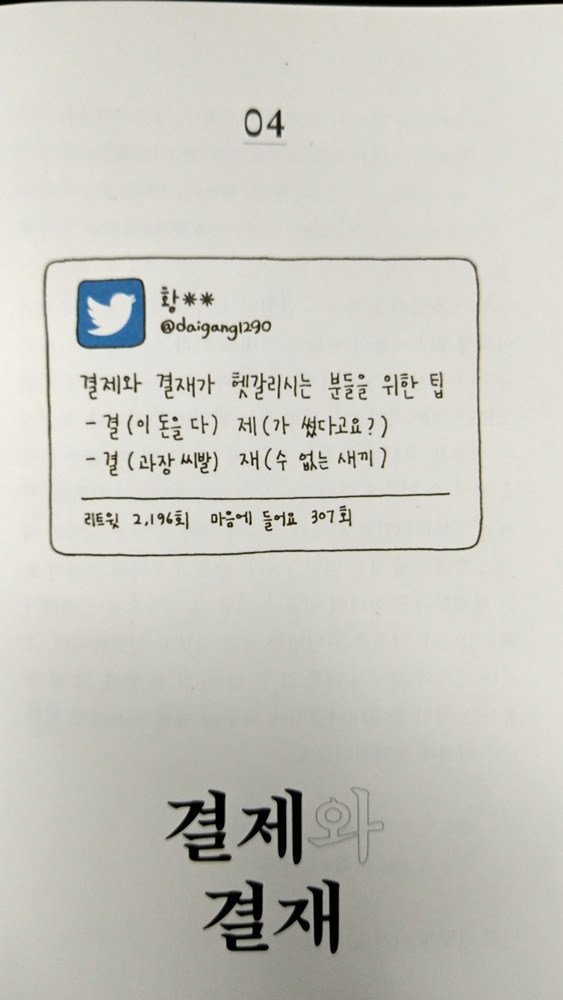 04
황**
@daigang1290
결제와 결재가 헷갈리시는 분들을 위한 팁
- 결(이 돈을 다) 제(가 썼다고요?)
- 결(과장 씨발) 재(수 없는 새끼)
리트윗 2,196회 마음에 들어요 307회
결제와
결재